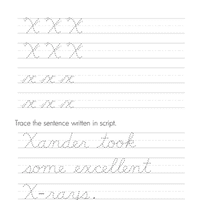 X X X
X X X
x x x
x x x
Trace the sentence written in script.
Xander took
some excellent
X-rays.